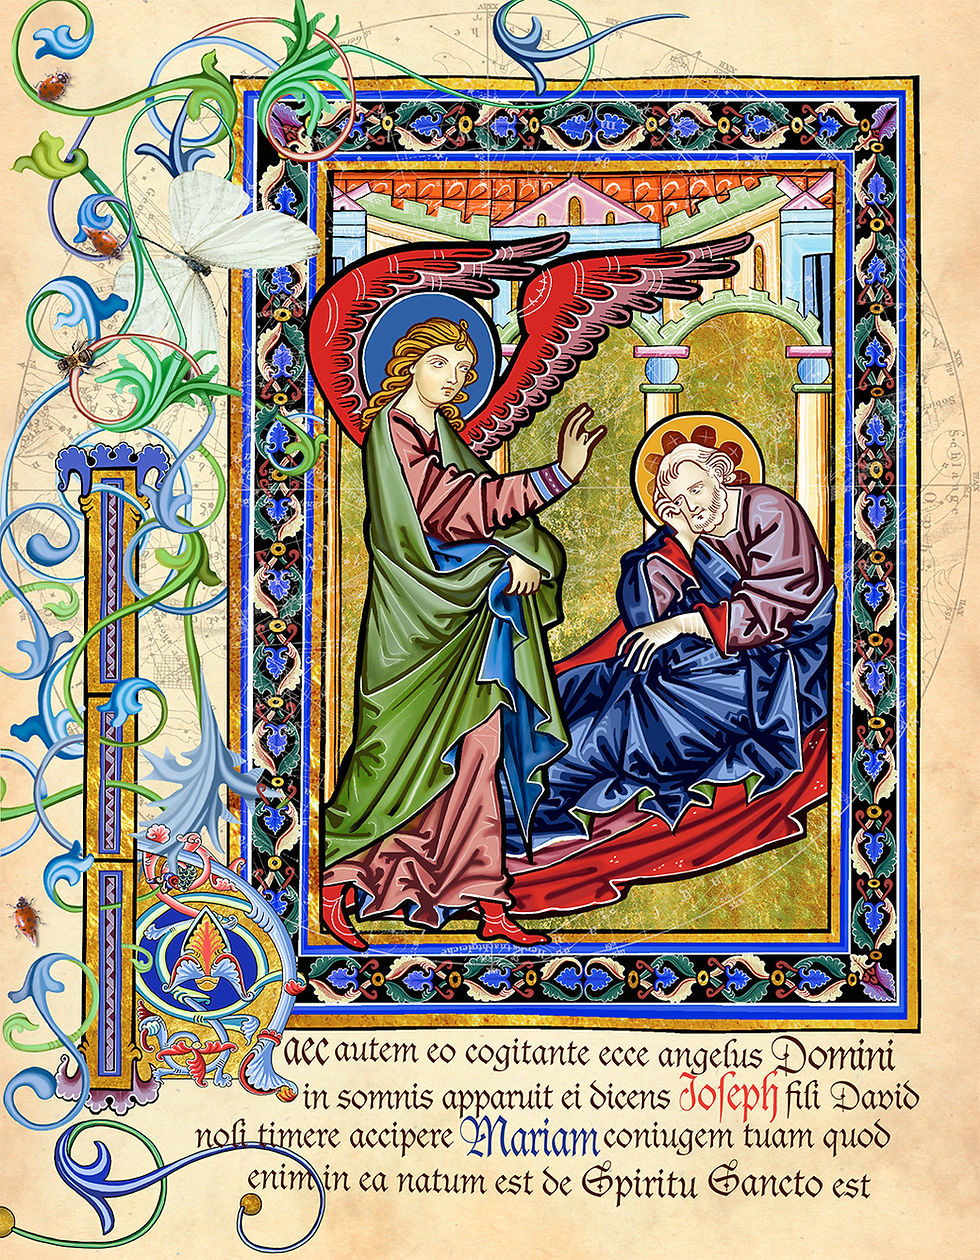 Haec autem eo cogitante ecce angelus Domini
in somnis apparuit ei dicens Joseph fili David
noli timere accipere Mariam coniugem tuam quod
enim in ea natum est de Spiritu Sancto est